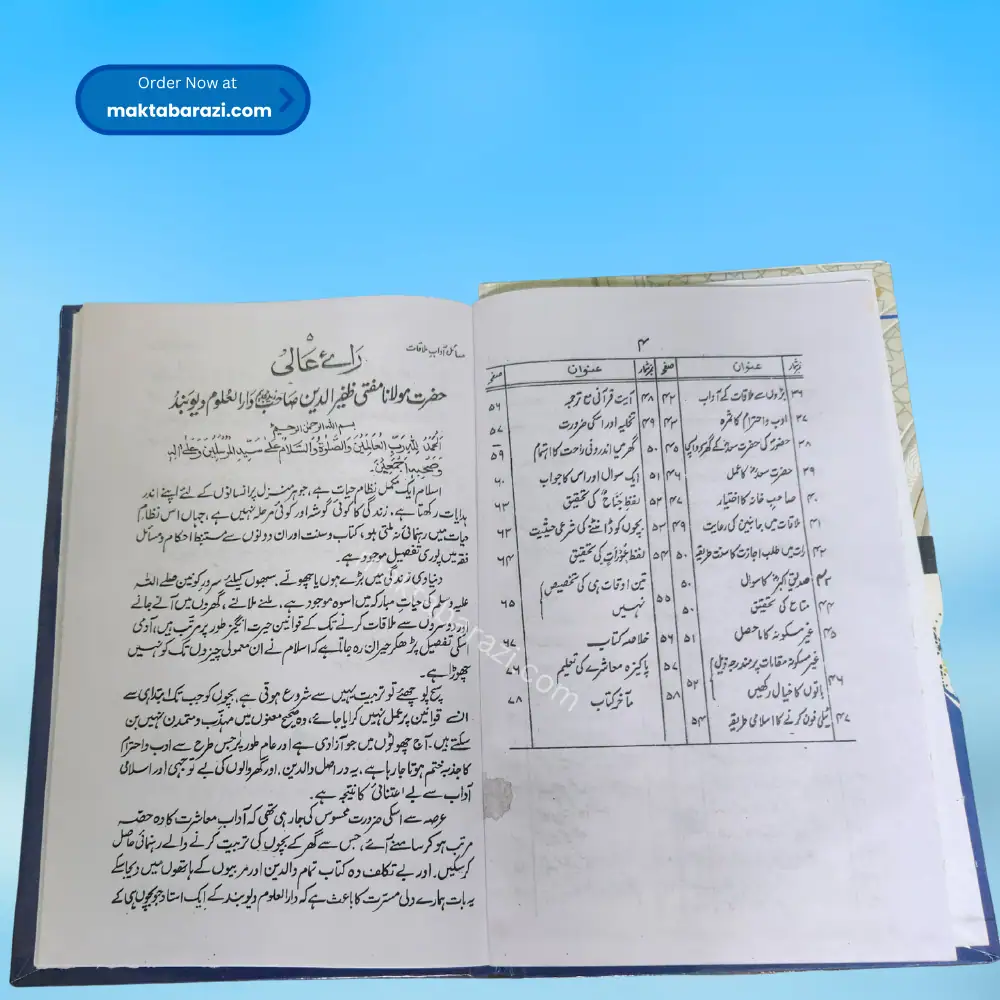 Order Now at
maktabarazi.com
۴
نمبر شمار عنوان صفحہ نمبر شمار عنوان صفحہ
۳۶ بڑوں سے ملاقات کے آداب ۴۲ ۴۸ آیت قرآنی مع ترجمہ ۵۶
۳۷ ادب واحترام کا ثمرہ ۴۳ ۴۹ تخلیہ اور اسکی ضرورت ۵۷
۳۸ حضورؐ کی حضرت سعدؓ کے گھر سے واپسی ۴۵ ۵۰ گھر میں اندرونی راحت کا اہتمام ۵۹
۳۹ حضرت سعدؓ کا عمل ۴۶ ۵۱ ایک سوال اور اس کا جواب ۶۰
۴۰ صاحب خانہ کا اختیار ۴۷ ۵۲ لفظ جُنَاح کی تحقیق ۶۲
۴۱ ملاقات میں جانبین کی رعایت ۴۹ ۵۳ بچوں کو ڈانٹنے کی شرعی حیثیت ۶۳
۴۲ رات میں طلب اجازت کا سنت طریقہ ۵۰ ۵۴ لفظ عَوْرَات کی تحقیق ۶۴
۴۳ صدیق اکبرؓ کا سوال ۵۰ ۵۵ تین اوقات ہی کی تخصیص
۴۴ متاع کی تحقیق ۵۰ نہیں ۶۵
۴۵ غیر مسکونہ کا ماحصل ۵۱ ۵۶ خلاصہ کتاب
۴۶ غیر مسکونہ مقامات پر مندرجہ ذیل ۵۷ پاکیزہ معاشرے کی تعلیم
باتوں کا خیال رکھیں ۵۲ ۵۸ مآخذ کتاب ۷۸
۴۷ ٹیلی فون کرنے کا اسلامی طریقہ ۵۴
مسائل آداب ملاقات
۵
رائے عالی
حضرت مولانا مفتی ظفیر الدین صاحب دارالعلوم دیوبند
بسم اللہ الرحمن الرحیم
اَلْحَمْدُ لِلّٰهِ رَبِّ الْعٰلَمِيْنَ وَالصَّلٰوةُ وَالسَّلَامُ عَلٰى سَيِّدِ الْمُرْسَلِيْنَ وَعَلٰى اٰلِهٖ
وَصَحْبِهٖ اَجْمَعِيْنَ
اسلام ایک مکمل نظام حیات ہے، جو ہر منزل پر انسانوں کے لئے اپنے اندر
ہدایات رکھتا ہے۔ زندگی کا کوئی گوشہ اور کوئی مرحلہ نہیں ہے، جہاں اس نظام
حیات میں رہنمائی نہ ملتی ہو، کتاب وسنت اور ان دونوں سے مستنبط احکام و مسائل
فقہ میں پوری تفصیل موجود ہے۔
دنیاوی زندگی میں بڑے ہوں یا چھوٹے، سبھوں کیلئے سرور کونین صلے اللہ
علیہ وسلم کی حیات مبارکہ میں اسوہ موجود ہے، ملنے ملانے، گھروں میں آنے جانے
اور دوسروں سے ملاقات کرنے تک کے قوانین حیرت انگیز طور پر مرتب ہیں، آدمی
اسکی تفصیل پڑھکر حیران رہ جاتا ہے کہ اسلام نے ان معمولی چیزوں تک کو نہیں
چھوڑا ہے۔
سچ پوچھئے تو تربیت یہیں سے شروع ہوتی ہے، بچوں کو جب تک ابتدا ہی سے
ان قوانین پر عمل نہیں کرایا جائے، وہ صحیح معنوں میں مہذب و متمدن نہیں بن
سکتے ہیں۔ آج چھوٹوں میں جو آزادی ہے اور عام طور پر جس طرح سے ادب واحترام
کا جذبہ ختم ہوتا جارہا ہے، یہ دراصل والدین، اور گھر والوں کی بے توجہی اور اسلامی
آداب سے بے اعتنائی کا نتیجہ ہے۔
عرصہ سے اسکی ضرورت محسوس کی جارہی تھی کہ آداب معاشرت کا وہ حصہ
مرتب ہو کر سامنے آئے، جس سے گھر کے بچوں کی تربیت کرنے والے رہنمائی حاصل
کرسکیں۔ اور بے تکلف وہ کتاب تمام والدین اور مربیوں کے ہاتھوں میں دیجا سکے
یہ بات ہمارے دلی مسرت کا باعث ہے کہ دارالعلوم دیوبند کے ایک استاد جو بچوں ہی کے
maktabarazi.com